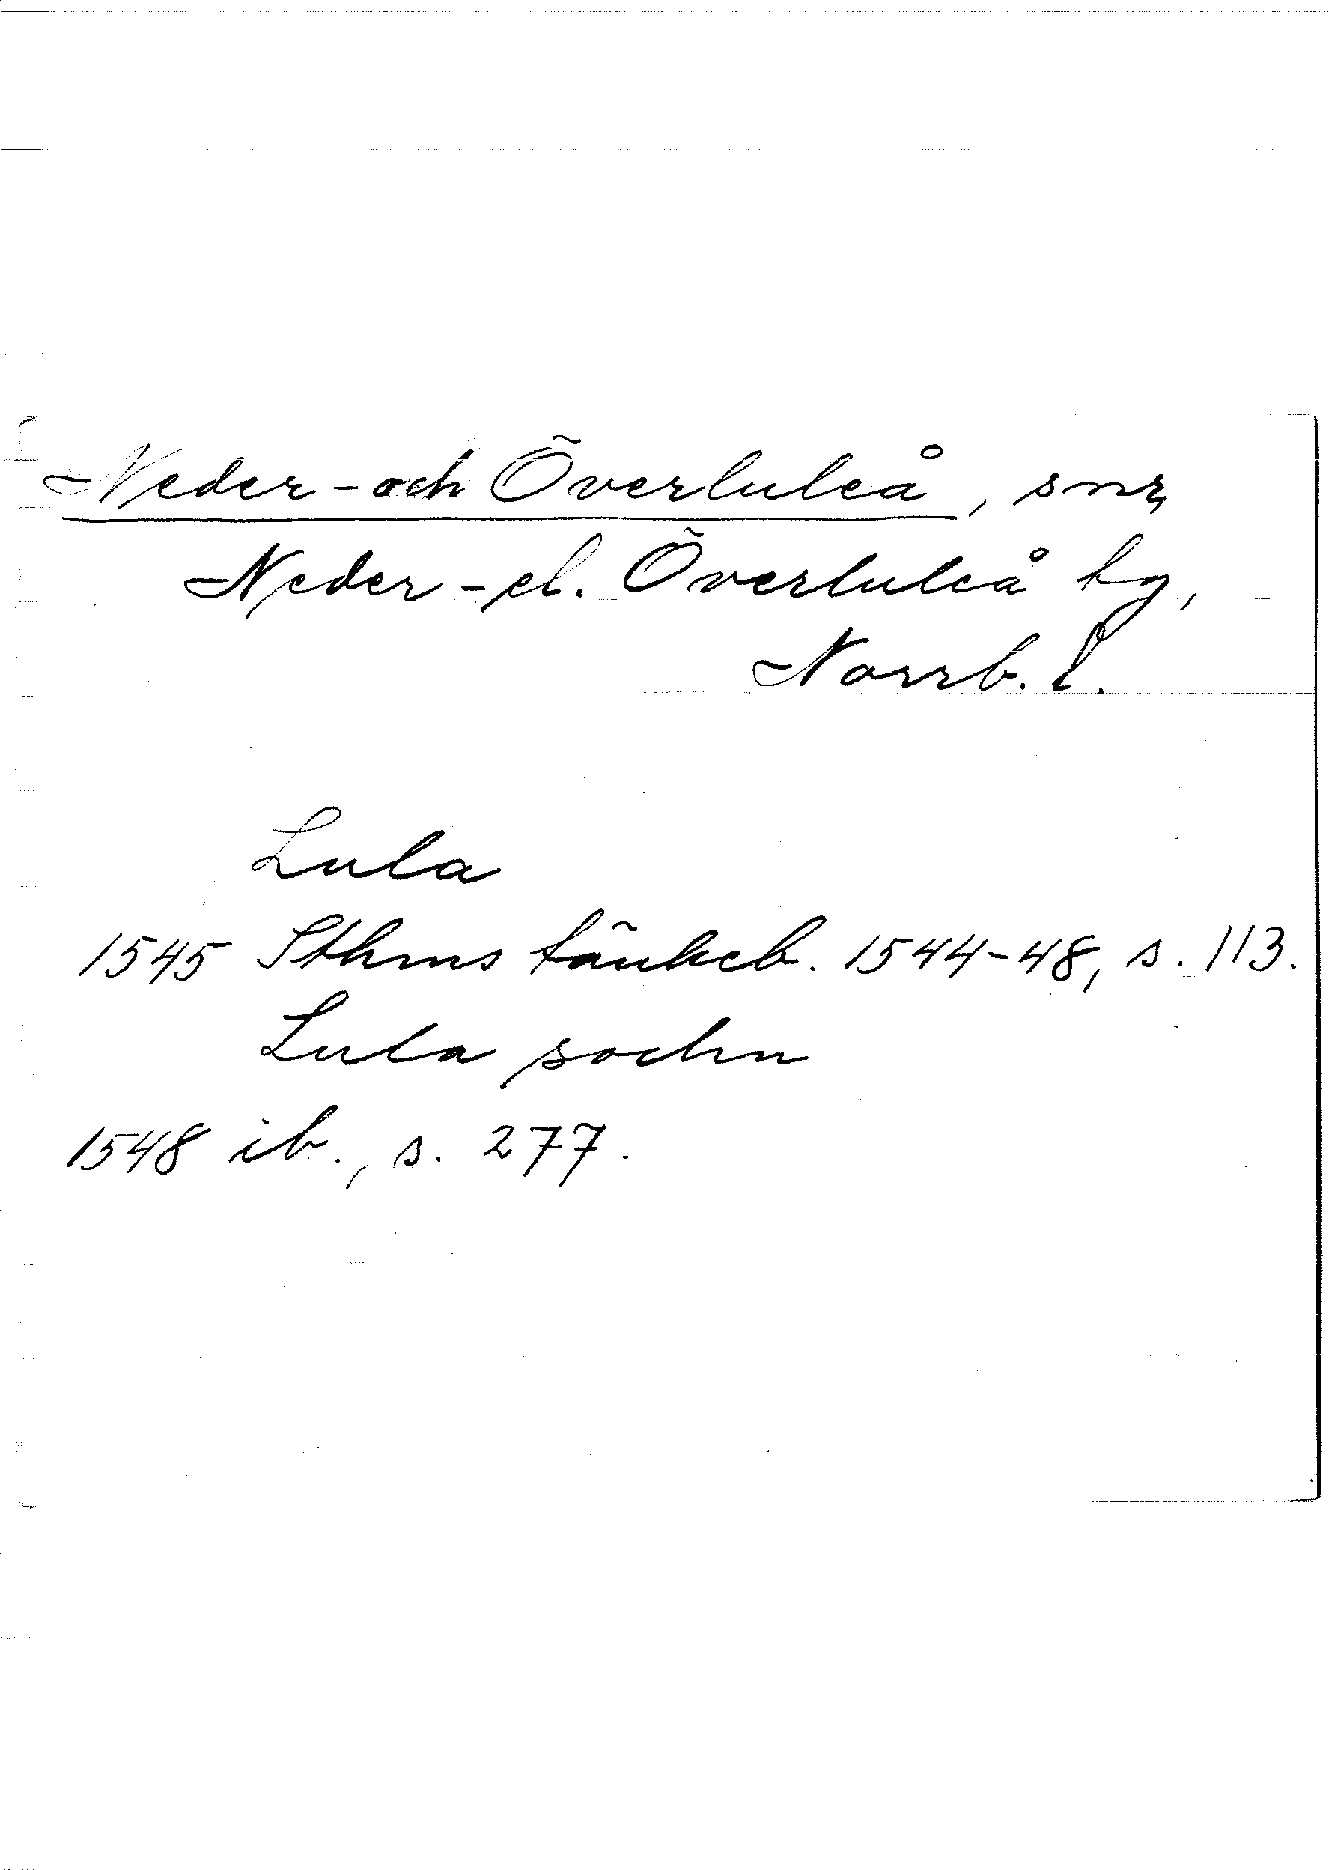 Neder- och Överluleå, snr,
Neder- el. Överluleå tg,
Norrb. l.
Lula
1545 Sthms tänkeb. 1544-48, s. 113.
Lula sochn
1548 ib., s. 277.